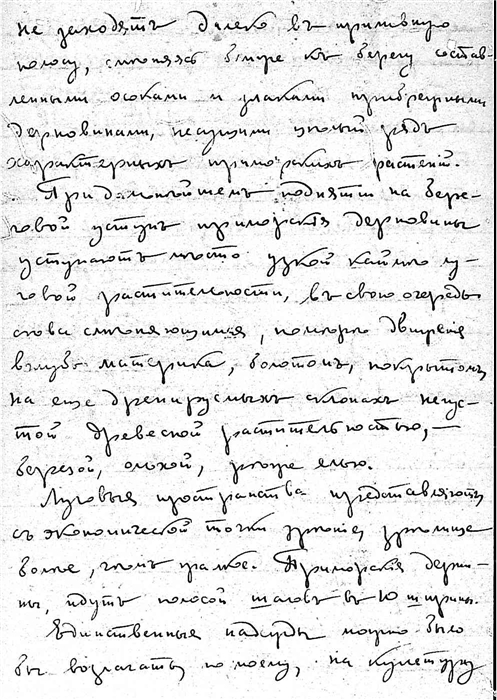 не заходятъ далеко въ приливную
полосу, смѣняясь вскорѣ къ берегу состав-
ленными осоками и злаками прибрежными
дерновинами, несущими цѣлый рядъ
характерныхъ приморскихъ растенiй.
При дальнѣйшемъ поднятiи на бере-
говой уступъ приморскiя дерновины
уступаютъ мѣсто узкой каймѣ лу-
говой растительности, въ свою очередь
снова смѣняющимся, по мѣрѣ движенiя
вглубь материка, болотомъ, покрытымъ
на еще дренируемыхъ склонахъ негус-
той древесной растительностью, —
березой, ольхой, рѣже елью.
Луговыя пространства представляютъ
съ экономической точки зрѣнiя зрѣлище
болѣе, чѣмъ жалкое. Приморскiя дерни-
ны, идутъ полосой шаговъ въ 10 ширины.
Единственныя надежды можно было
бы возлагать, по моему, на культуру